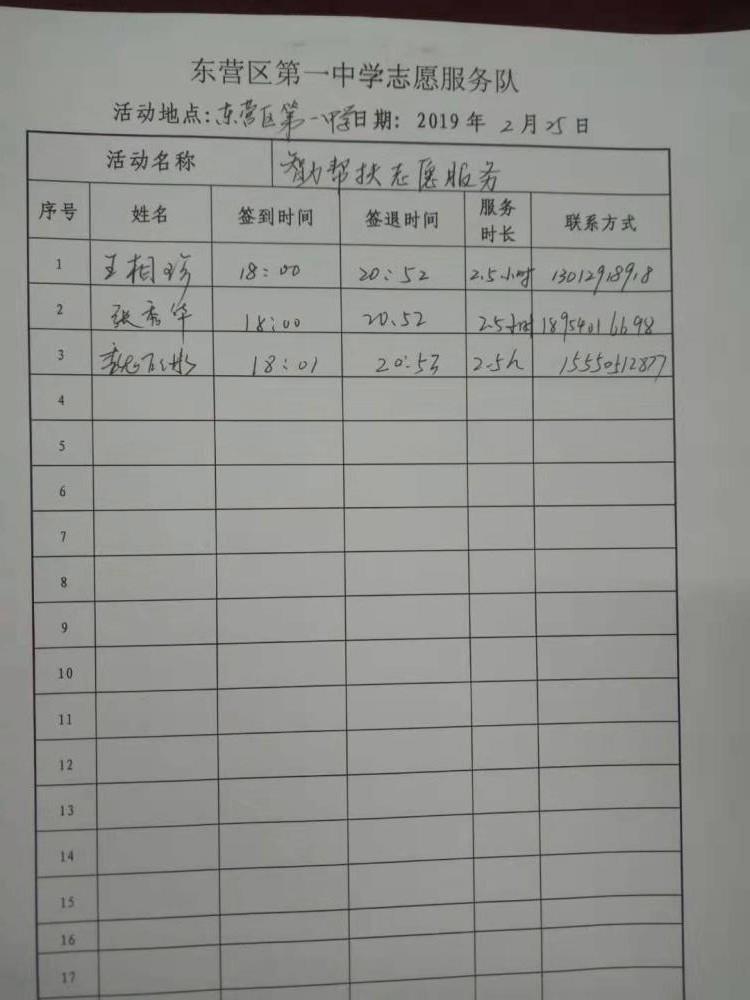 东营区第一中学志愿服务队
活动地点:东营区第一中学日期: 2019 年 2 月 25 日
活动名称 智力帮扶志愿服务
序号 姓名 签到时间 签退时间 服务时长 联系方式
1 王相珍 18:00 20:52 2.5小时 13012918918
2 张秀华 18:00 20.52 2.5小时 18954016698
3 18:01 20:53 2.5h 15550512877
4
5
6
7
8
9
10
11
12
13
14
15
16
17